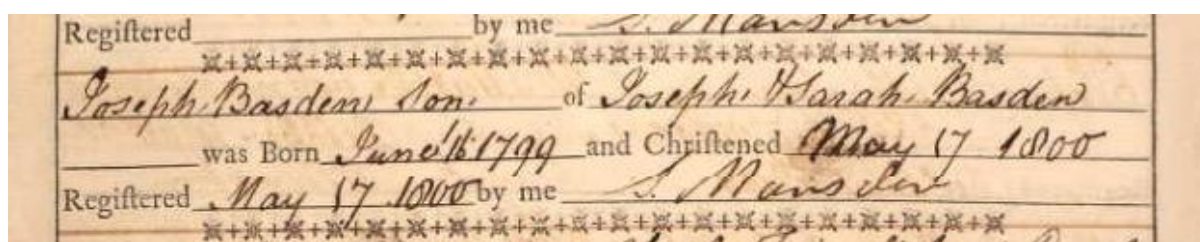 Regiſtered by me S. Marsden
Joseph Basden Son of Joseph & Sarah Basden
was Born June 16 1799 and Chriſtened May 17 1800
Regiſtered May 17 1800 by me S. Marsden